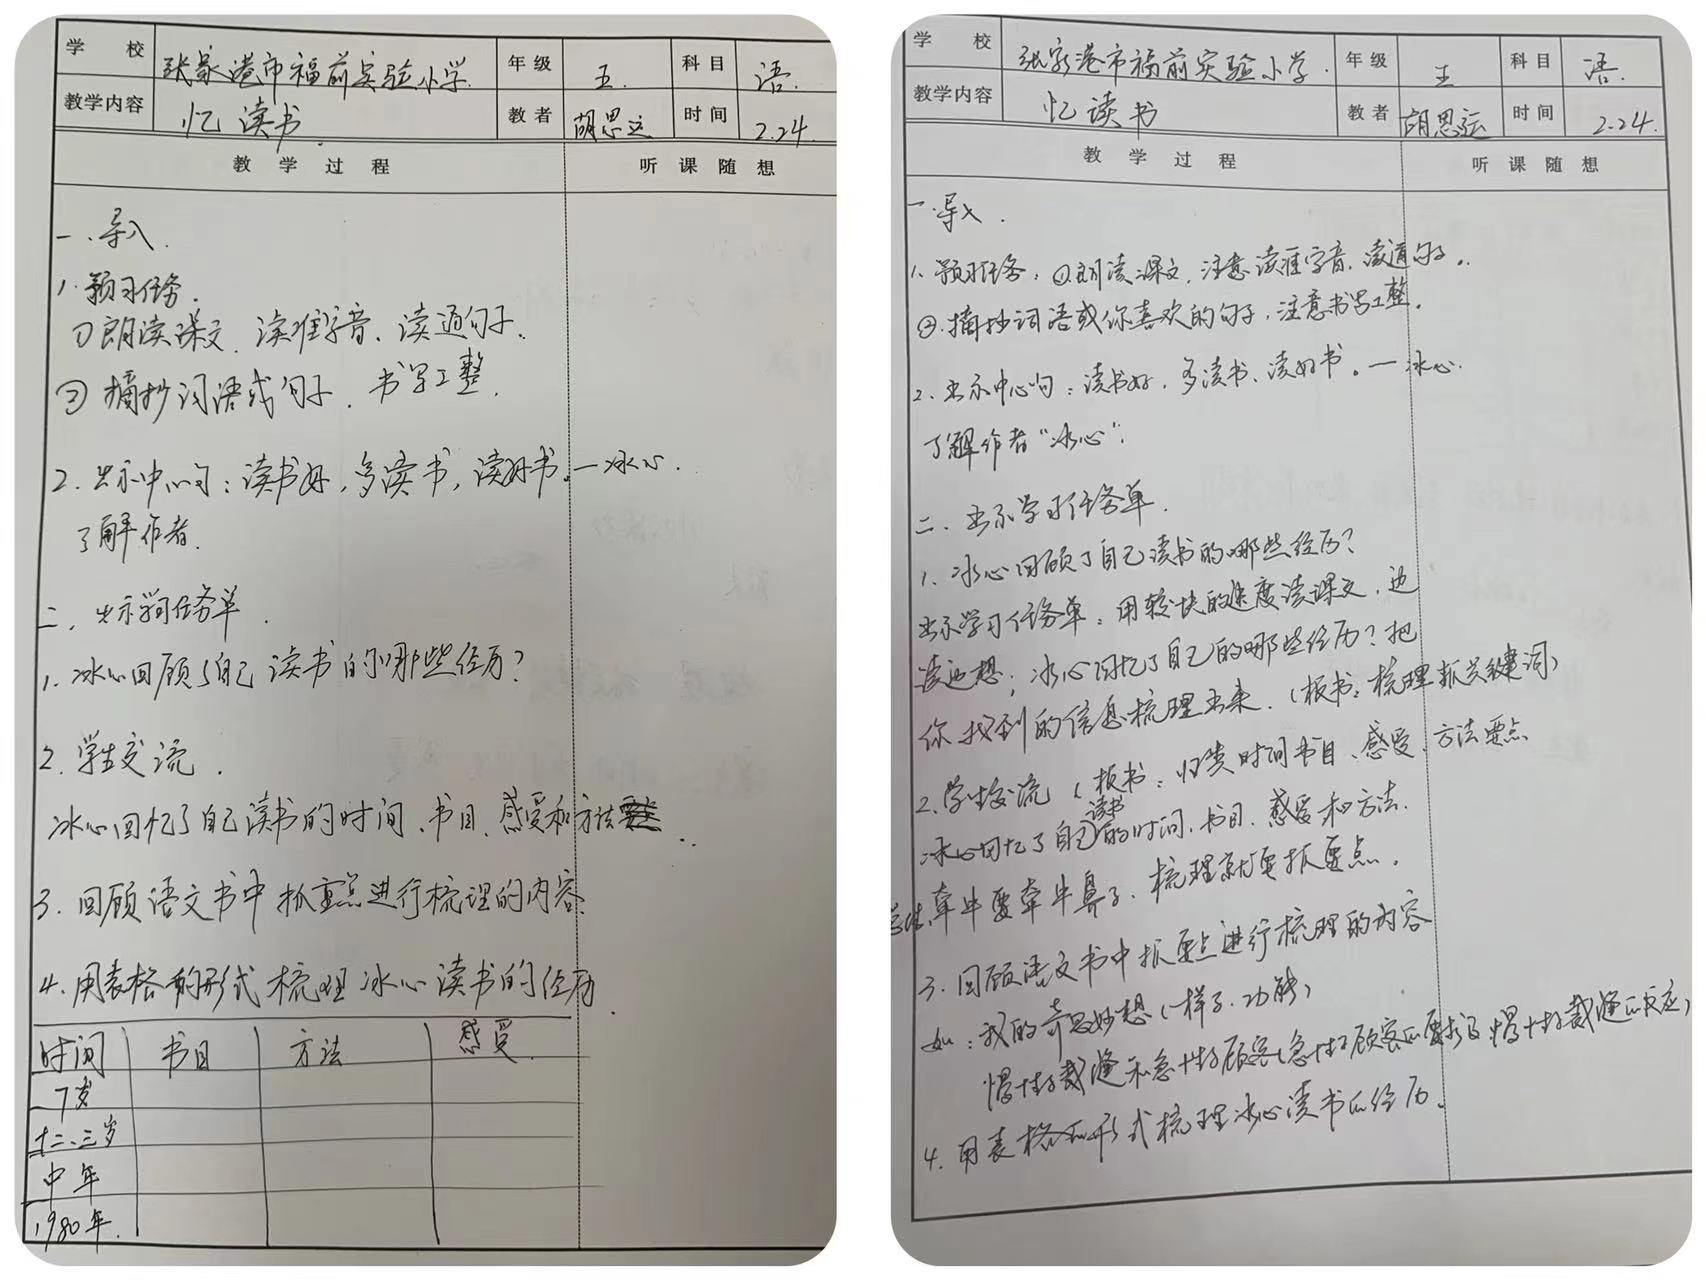 学 校 张家港市福前实验小学. 年级 五. 科目 语.
教学内容 忆读书. 教者 胡思运 时间 2.24.
教 学 过 程 听 课 随 想
一.导入.
1.预习任务.
①朗读课文、读准字音、读通句子.
② 摘抄词语或句子、书写工整.
2.出示中心句:读书好,多读书,读好书。—冰心.
了解作者.
二,出示学习任务单.
1.冰心回顾了自己读书的哪些经历?
2.学生交流.
冰心回忆了自己读书的时间、书目、感受和方法
3.回顾语文书中抓重点进行梳理的内容.
4.用表格的形式梳理冰心读书的经历.
时间 书目 方法 感受.
7岁
十二、三岁
中年
1980年.
学 校 张家港市福前实验小学. 年级 五 科目 语.
教学内容 忆读书 教者 胡思运 时间 2.24.
教 学 过 程 听 课 随 想
一.导入.
1.预习任务:①朗读课文,注意读准字音、读通句子.
②.摘抄词语或你喜欢的句子,注意书写工整。
2.出示中心句:读书好,多读书、读好书。—冰心.
了解作者“冰心”.
二.出示学习任务单.
1.冰心回顾了自己读书的哪些经历?
出示学习任务单:用较快的速度读课文,边
读边想:冰心回忆了自己的哪些经历?把
你找到的信息梳理出来.(板书:梳理抓关键词)
2.学生交流(板书:归类时间书目、感受、方法要点
冰心回忆了自己读书的时间、书目、感受和方法.
总结:牵牛要牵牛鼻子,梳理就要抓要点.
3.回顾语文书中抓要点进行梳理的内容
如:我的奇思妙想(样子、功能)
慢性子裁缝和急性子顾客(急性子顾客的要求 慢性子裁缝的反应)
4.用表格的形式梳理冰心读书的经历。